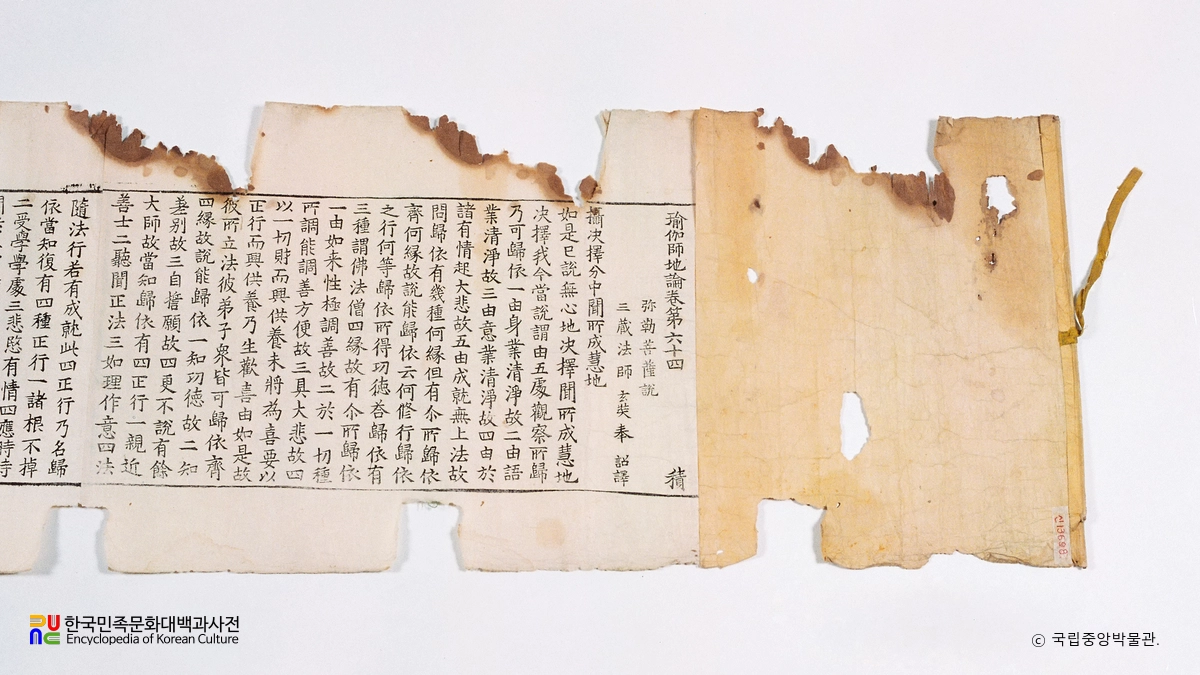 瑜伽師地論卷第六十四 積
弥勒菩薩說
三藏法師 玄奘 奉 詔譯
攝決擇分中聞所成慧地
如是已說無心地決擇聞所成慧地
決擇我今當說謂由五處觀察所歸
乃可歸依一由身業清淨故二由語
業清淨故三由意業清淨故四由於
諸有情起大悲故五由成就無上法故
問歸依有幾種何緣但有尒所歸依
齊何緣故說能歸依云何修行歸依
之行何等歸依所得功德荅歸依有
三種謂佛法僧四緣故有尒所歸依
一由如来性極調善故二於一切種
所調能調善方便故三具大悲故四
以一切財而興供養未將為喜要以
正行而興供養乃生歡喜由如是故
彼所立法彼弟子衆皆可歸依齊
四緣故說能歸依一知功德故二知
差別故三自誓願故四更不說有餘
大師故當知歸依有四正行一親近
善士二聽聞正法三如理作意四法
隨法行若有成就此四正行乃名歸
依當知復有四種正行一諸根不掉
二受學學處三悲愍有情四應時
신13698
한국민족문화대백과사전
Encyclopedia of Korean Culture
© 국립중앙박물관.